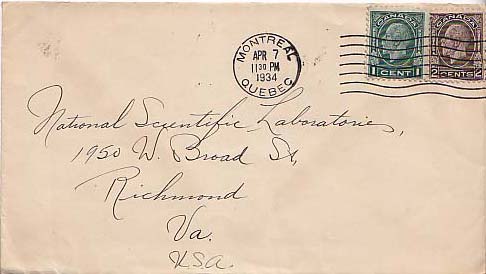 MONTREAL
APR 7
11 30 PM
1934
QUEBEC
CANADA
1 CENT 1
CANADA
2 CENTS 2
National Scientific Laboratories,
1950 W. Broad St,
Richmond
Va.
U.S.A.